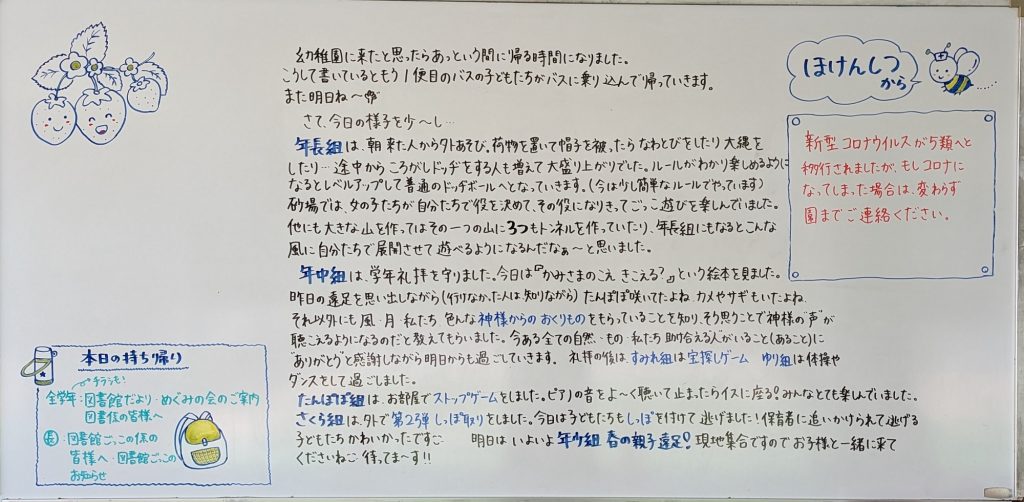 幼稚園に来たと思ったらあっという間に帰る時間になりました。
こうして書いているともう1便目のバスの子どもたちがバスに乗り込んで帰っていきます。
また明日ね〜
さて、今日の様子を少〜し…
年長組は、朝来た人から外あそび、荷物を置いて帽子を被ったらなわとびをしたり大縄を
したり…途中からころがしドッヂをする人も増えて大盛り上がりでした。ルールがわかり楽しめるように
なるとレベルアップして普通のドッヂボールへとなっていきます。(今は少し簡単なルールでやっています)
砂場では、女の子たちが自分たちで役を決めて、その役になりきってごっこ遊びを楽しんでいました。
他にも大きな山を作ってはその一つの山に3つもトンネルを作っていたり、年長組にもなるとこんな
風に自分たちで展開させて遊べるようになるんだなぁ〜と思いました。
年中組は、学年礼拝を守りました。今日は『かみさまのこえ きこえる?』という絵本を見ました。
昨日の遠足を思い出しながら(行けなかった人は知りながら)たんぽぽ咲いてたよね、カメやサギもいたよね、
それ以外にも風・月・私たち色んな神様からのおくりものをもらっていることを知り、そう思うことで神様の"声"が
聴こえるようになるのだと教えてもらいました。今ある全ての自然・もの・私たち助け合える人がいること(あること)に
"ありがとう"と感謝しながら明日からも過ごしていきます。 礼拝の後は、すみれ組は宝探しゲーム ゆり組は体操や
ダンスをして過ごしました。
たんぽぽ組は、お部屋でストップゲームをしました。ピアノの音をよ〜く聴いて止まったらイスに座る!みんなとても楽しんでいました。
さくら組は、外で第2弾しっぽ取りをしました。今日は子どもたちもしっぽを付けて逃げました!保育者に追いかけられて逃げる
子どもたちかわいかったです 明日はいよいよ年少組 春の親子遠足!現地集合ですのでお子様と一緒に来て
くださいね 待ってま〜す!!
ほけんしつ
から
新型コロナウイルスが5類へと
移行されましたが、もしコロナに
なってしまった場合は、変わらず
園までご連絡ください。
本日の持ち帰り
チラシも!
全学年:図書館だより・めぐみの会のご案内
図書係の皆様へ
長:図書館ごっこの係の
皆様へ・図書館ごっこの
お知らせ